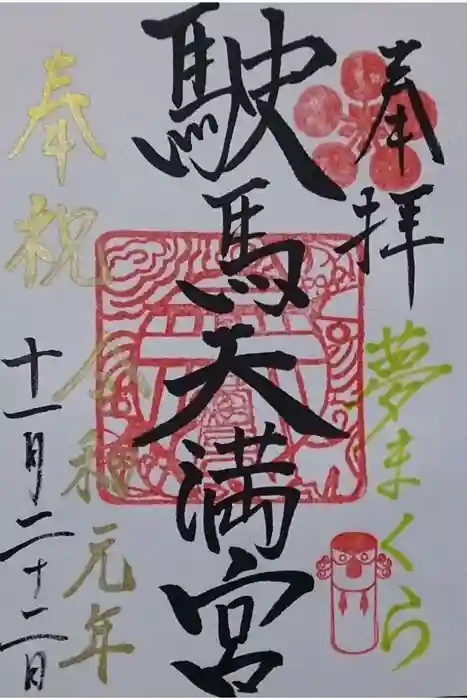 奉拝
夢まくら
駛馬天満宮
奉祝
令和元年
十一月二十二日